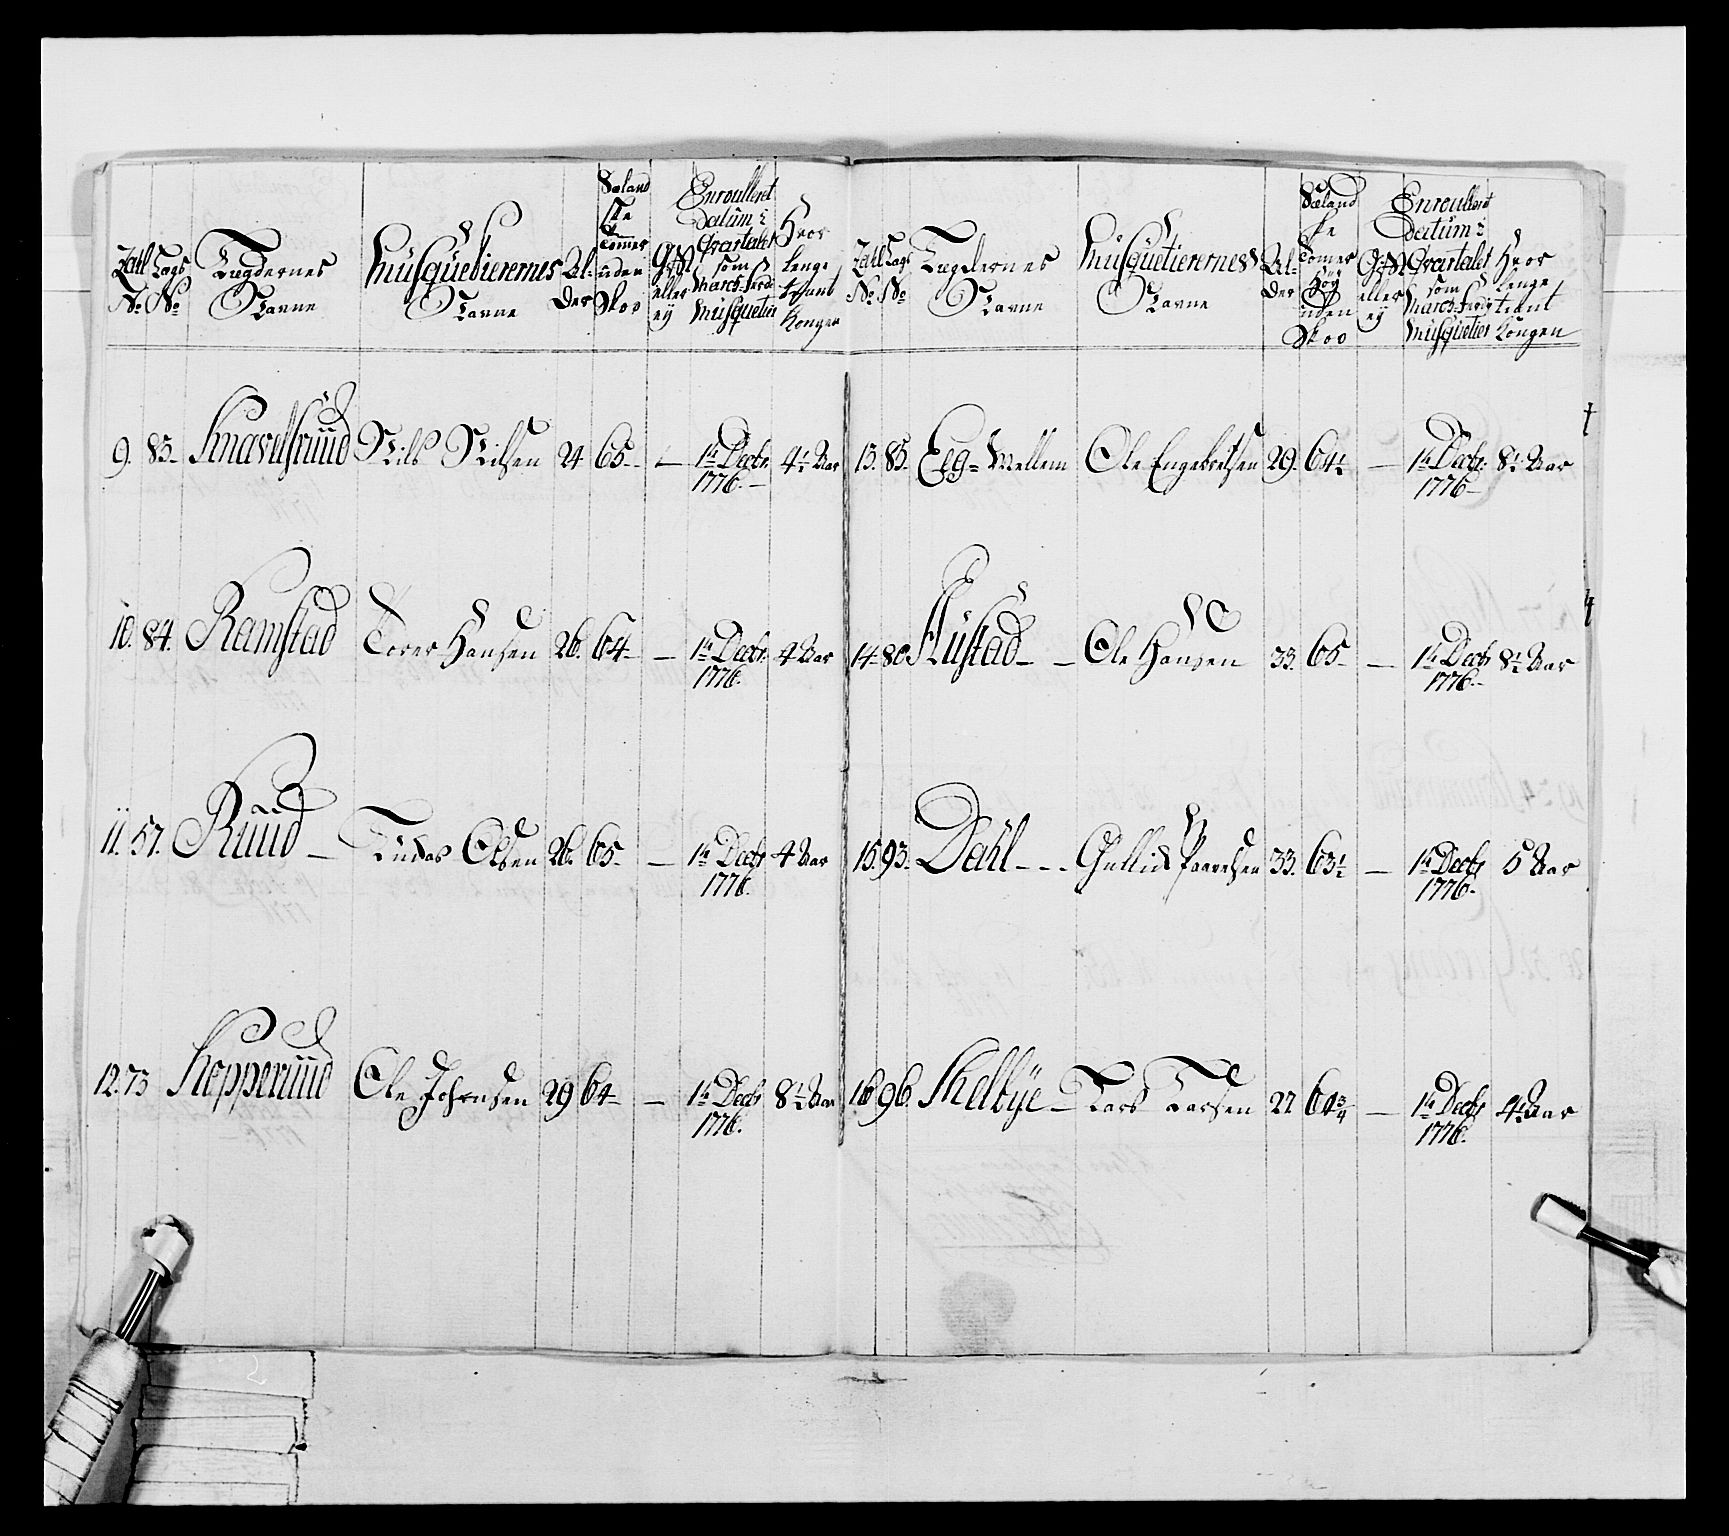 Zahl No. Lægs No. Lægdernes Navne Musquetierernes Navne Alder Sælandske Tommer uden Skoe Gift eller ey Enroulleret datum: som March-ferdi Musquetier Hvor lenge tient Kongen
9. 83. Knavelsruud Nils Nilsen 24 65. — 1te Decbr. 1776. — 4½ Aar
10. 84. Ramstad Torer Hansen 26. 64 — 1te Decbr. 1776. 4 Aar
11. 57. Ruud — Olsen 26. 65. — 1te Decbr 1776. 4 Aar
12. 73 Kopperuud Ole Johnsen 29 64 — 1te Decbr 1776. 8½ Aar
Zahl No. Lægs No. Lægdernes Navne Musquetierernes Navne Alder Sælandske Tomer høy uden Skoe Gift eller ey Enroulleret datum: som March-ferdi Musquetier Hvor lenge tient Kongen
13. 85. Eeg= Mellem Ole Engebretsen 29. 64½ — 1te Decbr. 1776 — 8½ Aar
14. 80. Rustad — Ole Hansen 33. 65 — 1te Decbr 1776. — 8½ Aar
15. 93. Dahl - - - Gullid Paavelsen 33. 63½ — 1te Decbr 1776. 5 Aar
16. 96. Skelbye — Lars Larsen 22 64¾ — 1te Decbr 1776. 4½ Aar